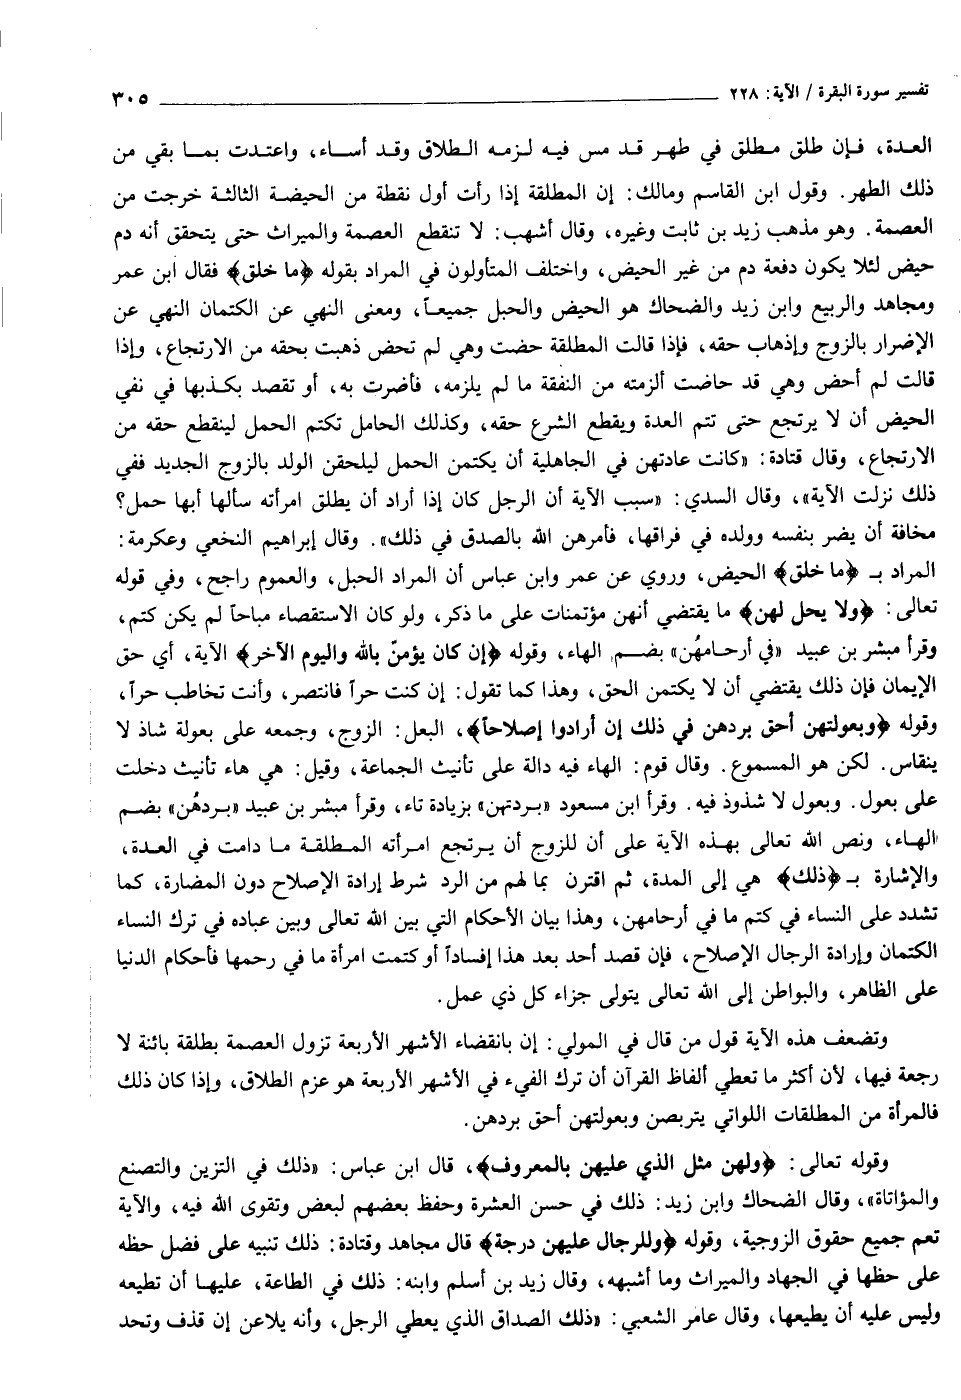 تفسير سورة البقرة / الآية: ٢٢٨ ٣٠٥
العدة، فإن طلق مطلق في طهر قد مس فيه لزمه الطلاق وقد أساء، واعتدت بما بقي من
ذلك الطهر. وقول ابن القاسم ومالك: إن المطلقة إذا رأت أول نقطة من الحيضة الثالثة خرجت من
العصمة. وهو مذهب زيد بن ثابت وغيره، وقال أشهب: لا تنقطع العصمة والميراث حتى يتحقق أنه دم
حيض لئلا يكون دفعة دم من غير الحيض، واختلف المتأولون في المراد بقوله ﴿ما خلق﴾ فقال ابن عمر
ومجاهد والربيع وابن زيد والضحاك هو الحيض والحبل جميعاً، ومعنى النهي عن الكتمان النهي عن
الإضرار بالزوج وإذهاب حقه، فإذا قالت المطلقة حضت وهي لم تحض ذهبت بحقه من الارتجاع، وإذا
قالت لم أحض وهي قد حاضت ألزمته من النفقة ما لم يلزمه، فأضرت به، أو تقصد بكذبها في نفي
الحيض أن لا يرتجع حتى تتم العدة ويقطع الشرع حقه، وكذلك الحامل تكتم الحمل لينقطع حقه من
الارتجاع، وقال قتادة: «كانت عادتهن في الجاهلية أن يكتمن الحمل ليلحقن الولد بالزوج الجديد ففي
ذلك نزلت الآية»، وقال السدي: «سبب الآية أن الرجل كان إذا أراد أن يطلق امرأته سألها أبها حمل؟
مخافة أن يضر بنفسه وولده في فراقها، فأمرهن الله بالصدق في ذلك». وقال إبراهيم النخعي وعكرمة:
المراد بـ ﴿ما خلق﴾ الحيض، وروي عن عمر وابن عباس أن المراد الحبل، والعموم راجح، وفي قوله
تعالى: ﴿ولا يحل لهن﴾ ما يقتضي أنهن مؤتمنات على ما ذكر، ولو كان الاستقصاء مباحاً لم يكن كتم،
وقرأ مبشر بن عبيد «في أرحامهُن» بضم الهاء، وقوله ﴿إن كان يؤمنّ بالله واليوم الآخر﴾ الآية، أي حق
الإيمان فإن ذلك يقتضي أن لا يكتمن الحق، وهذا كما تقول: إن كنت حراً فانتصر، وأنت تخاطب حراً،
وقوله ﴿وبعولتهن أحق بردهن في ذلك إن أرادوا إصلاحاً﴾، البعل: الزوج، وجمعه على بعولة شاذ لا
ينقاس. لكن هو المسموع. وقال قوم: الهاء فيه دالة على تأنيث الجماعة، وقيل: هي هاء تأنيث دخلت
على بعول. وبعول لا شذوذ فيه. وقرأ ابن مسعود «بردتهن» بزيادة تاء، وقرأ مبشر بن عبيد «بردهُن» بضم
الهاء، ونص الله تعالى بهذه الآية على أن للزوج أن يرتجع امرأته المطلقة ما دامت في العدة،
والإشارة بـ ﴿ذلك﴾ هي إلى المدة، ثم اقترن بما لهم من الرد شرط إرادة الإصلاح دون المضارة، كما
تشدد على النساء في كتم ما في أرحامهن، وهذا بيان الأحكام التي بين الله تعالى وبين عباده في ترك النساء
الكتمان وإرادة الرجال الإصلاح، فإن قصد أحد بعد هذا إفساداً أو كتمت امرأة ما في رحمها فأحكام الدنيا
على الظاهر، والبواطن إلى الله تعالى يتولى جزاء كل ذي عمل.
وتضعف هذه الآية قول من قال في المولي: إن بانقضاء الأشهر الأربعة تزول العصمة بطلقة بائنة لا
رجعة فيها، لأن أكثر ما تعطي ألفاظ القرآن أن ترك الفيء في الأشهر الأربعة هو عزم الطلاق، وإذا كان ذلك
فالمرأة من المطلقات اللواتي يتربصن وبعولتهن أحق بردهن.
وقوله تعالى: ﴿ولهن مثل الذي عليهن بالمعروف﴾، قال ابن عباس: «ذلك في التزين والتصنع
والمؤاتاة»، وقال الضحاك وابن زيد: ذلك في حسن العشرة وحفظ بعضهم لبعض وتقوى الله فيه، والآية
تعم جميع حقوق الزوجية، وقوله ﴿وللرجال عليهن درجة﴾ قال مجاهد وقتادة: ذلك تنبيه على فضل حظه
على حظها في الجهاد والميراث وما أشبهه، وقال زيد بن أسلم وابنه: ذلك في الطاعة، عليها أن تطيعه
وليس عليه أن يطيعها، وقال عامر الشعبي: «ذلك الصداق الذي يعطي الرجل، وأنه يلاعن إن قذف وتحد